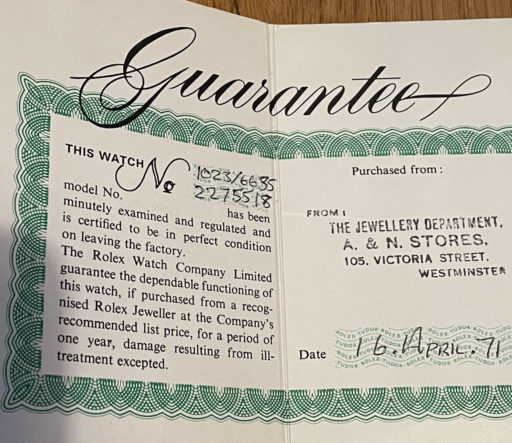 Guarantee
THIS WATCH No 1023/6635
model No. 2275518
has been
minutely examined and regulated and
is certified to be in perfect condition
on leaving the factory.
The Rolex Watch Company Limited
guarantee the dependable functioning of
this watch, if purchased from a recog-
nised Rolex Jeweller at the Company's
recommended list price, for a period of
one year, damage resulting from ill-
treatment excepted.
Purchased from :
FROM :
THE JEWELLERY DEPARTMENT,
A. & N. STORES,
105, VICTORIA STREET,
WESTMINSTER
Date 16.APRIL.71
ROLEX·TUDOR·ROLEX·TUDOR·ROLEX·TUDOR